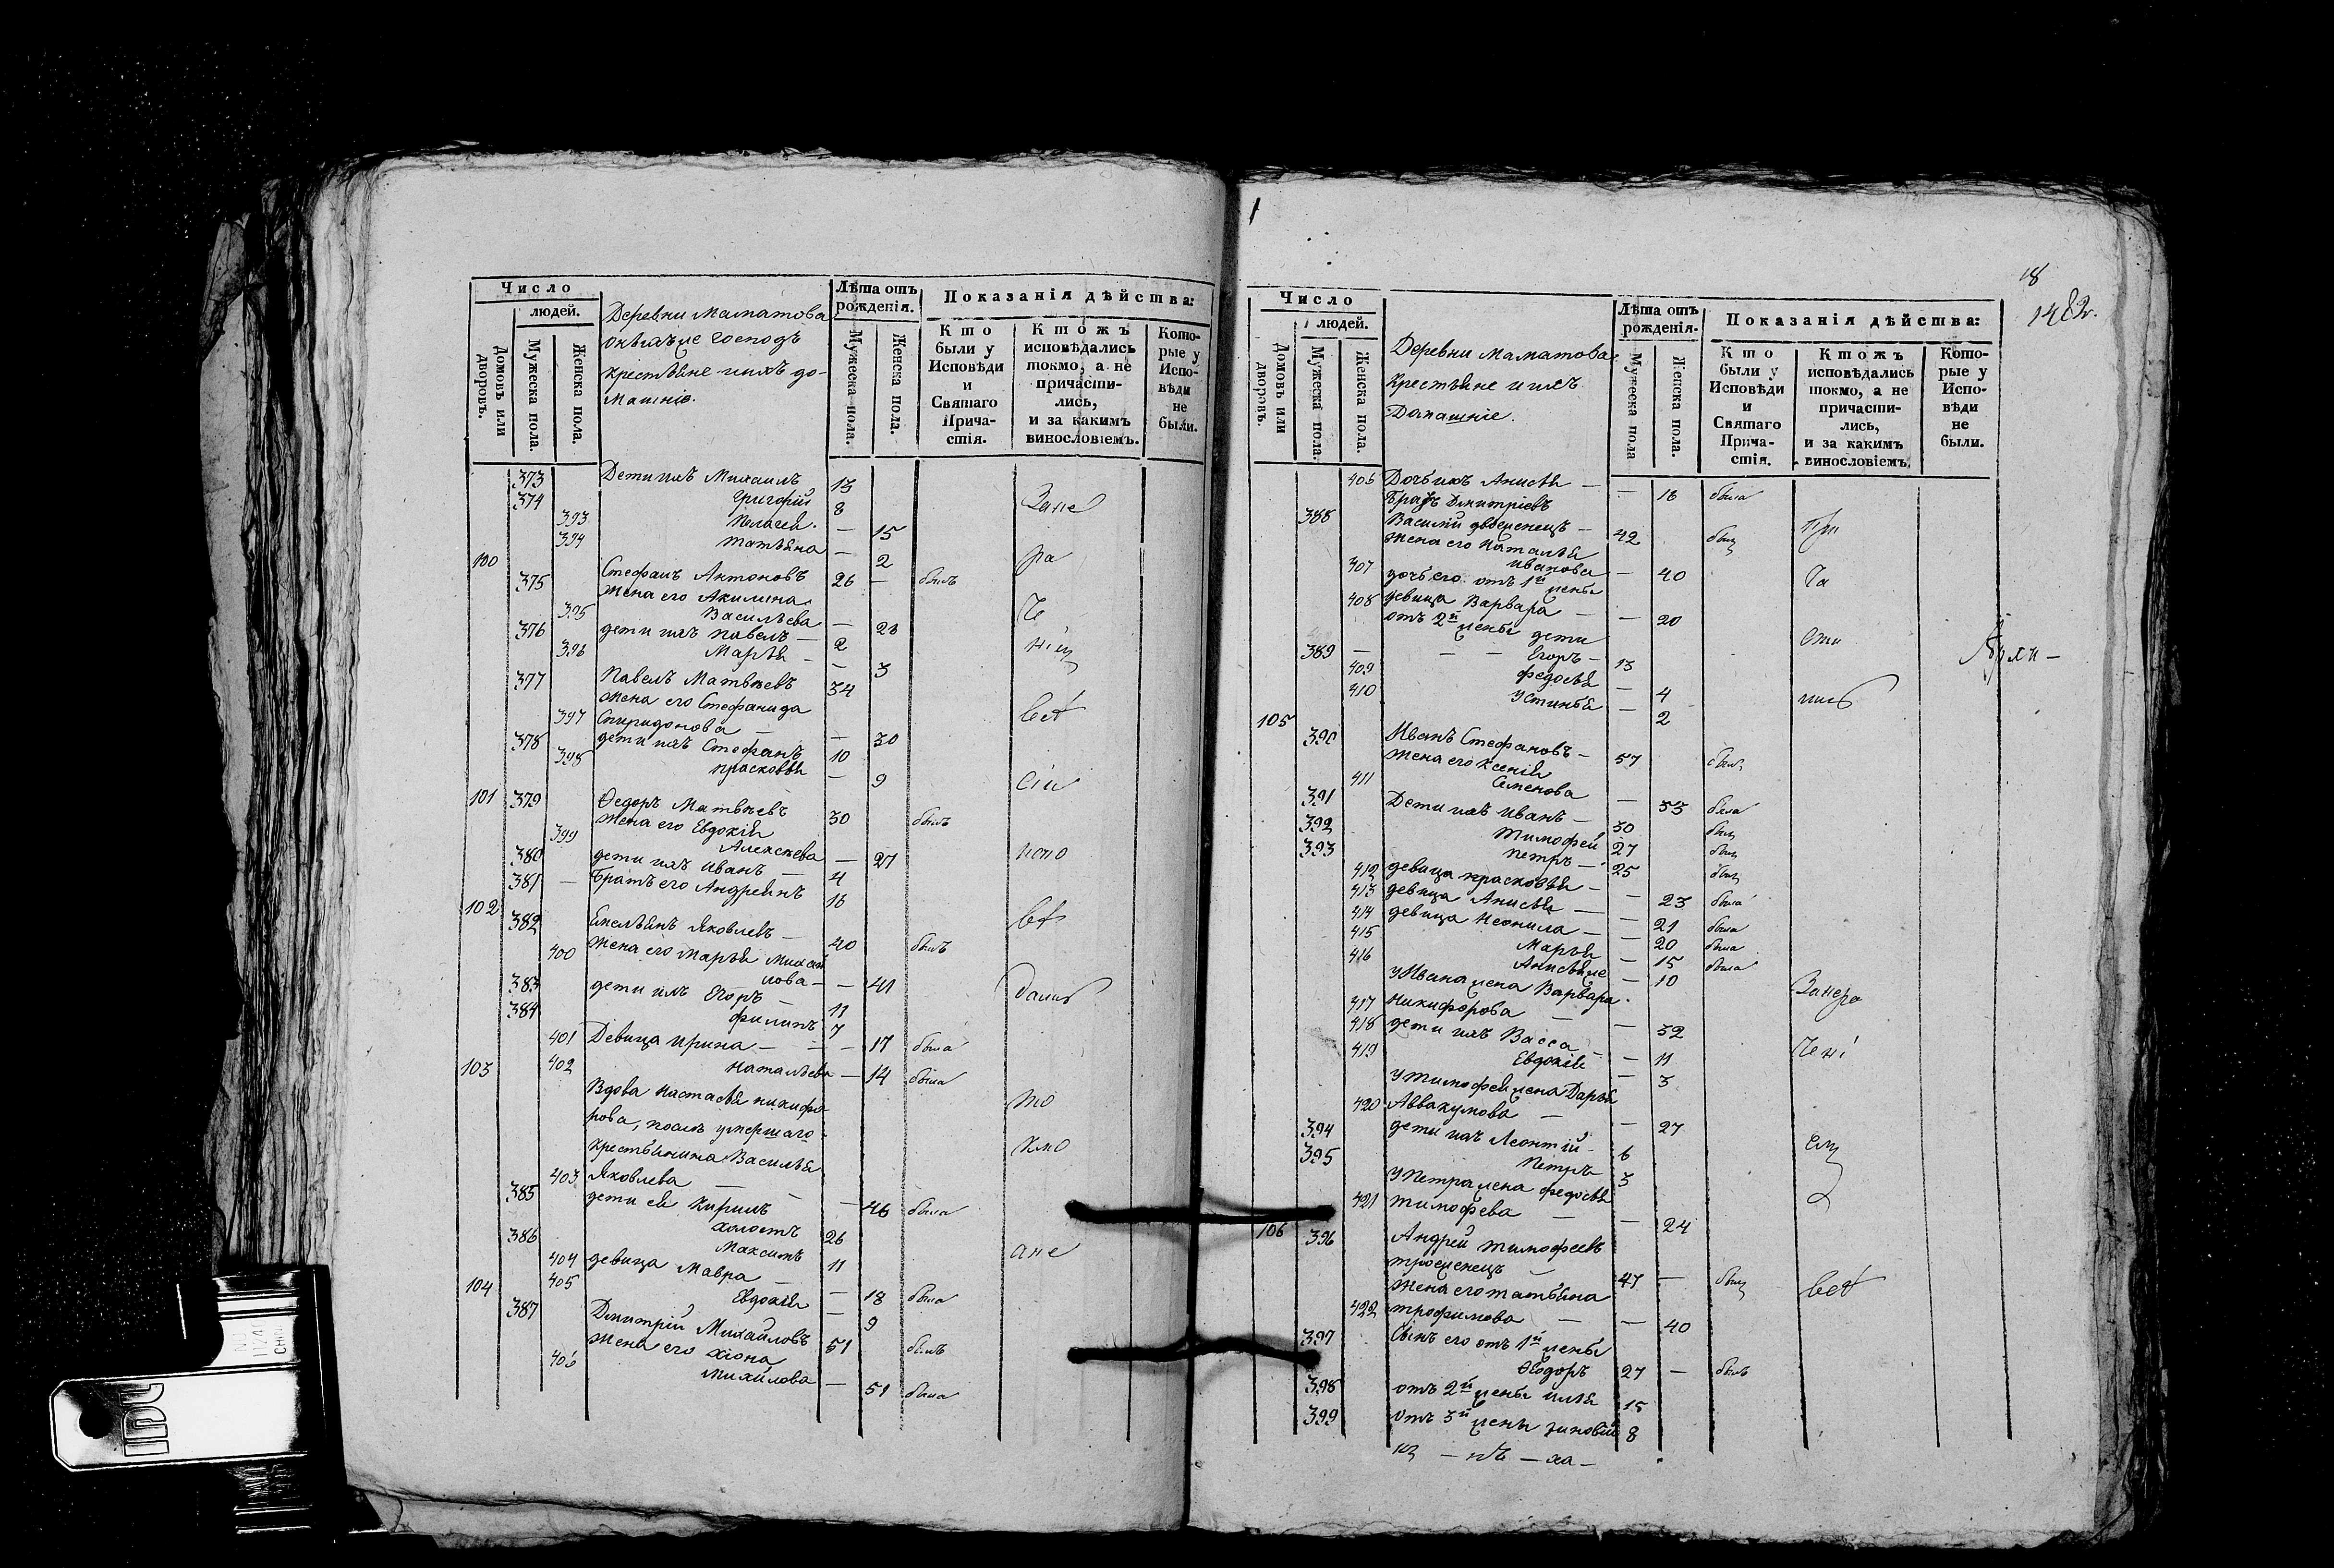 Число
людей.
Домовъ или дворовъ.
Мужеска пола.
Женска пола.
Деревни Маматова
господъ
крестьяне и ихъ до-
машніе.
Лѣта отъ рожденія.
Мужеска пола.
Женска пола.
Показанія дѣйства:
Кто были у Исповѣди и Святаго Причастія.
Ктожъ исповѣдались токмо, а не причастились, и за какимъ винословіемъ.
Которые у Исповѣди не были.
373 Дети ихъ Михаилъ 13
374 Григорій 8 Зане
393 Пелагея — 15
394 Татьяна — 2
100 ра
375 Стефанъ Антоновъ 26 — былъ
Жена его Акилина
395 Васильева — 23 че
376 дети ихъ Павелъ — 2
396 Марья — 3 нiем
377 Павелъ Матвѣевъ 34
Жена его Стефанида
397 Спиридонова — — 30 всѣ
378 дети ихъ Стефанъ 10
398 Прасковья — 9 сіи
101 379 Ѳедоръ Матвѣевъ 30 былъ
Жена его Евдокія
399 Алексѣева — 27 испо
380 дети ихъ Иванъ — 4
381 — Братъ его Андреянъ 16
102 вѣ
382 Емельянъ Яковлевъ — 40 былъ
400 Жена его Марья Михаи
лова — — 41 дались
383 дети ихъ Егоръ — 11
384 Филипъ 7
401 Девица Ирина — — — 17 была
103 402 Наталья — 14 была
Вдова Настасья Никифо
рова, послѣ умершаго то
крестьянина Василья кмо
403 Яковлева — 46 была
385 дети ея Кирилъ
холостъ 26
386 Максимъ 11 ане
404 девица Мавра — — 18 была
405 Евдокія — 9
104
387 Дмитрій Михайловъ 51 былъ
Жена его Хіона
406 Михайлова — 51 была
18
1482.
Число
людей.
Домовъ или дворовъ.
Мужеска пола.
Женска пола.
Деревни Маматова
Крестьяне и ихъ
Домашніе.
Лѣта отъ рожденія.
Мужеска пола
Женска пола.
Показанія дѣйства:
Кто были у Исповѣди и Святаго Причастія.
Ктожъ исповѣдались токмо, а не причастились, и за какимъ винословіемъ.
Которые у Исповѣди не были.
406 Дочь ихъ Анисья — — 16 была
Братъ Дмитріевъ
388 Василій двоеженецъ — 42 былъ при
Жена его Наталья
307 Иванова — 40 ча
дочь его отъ 1й жены
408 девица Варвара — — 20
отъ 2й жены дети сти
389 — — — Егоръ — 13
409 Федосья — 4
410 Устинья — 2 лись
Архи —
105
390 Иванъ Стефановъ — 57 былъ
Жена его Ксенія
411 Семенова — 53 была
391 Дети ихъ Иванъ — 30 былъ
392 Тимофей 27 былъ
393 Петръ — 25 былъ
412 девица Прасковья — — 23 была
413 девица Анисья — — 21 была
414 девица Неонила — — 20 была
415 Марья — 15 была
416 — 10
у Ивана жена Варвара
417 Никифорова — — 32 Занера
418 дети ихъ Васса — — 11
419 Евдокія — 3 чені
у Тимофея жена Дарья
420 Аввакумова — — 27
394 дети ихъ Леонтій 6 ем
395 Петръ 3
у Петра жена Федосья
421 Тимофева — — 24
106 396 Андрей Тимофеевъ
троеженецъ — 47 — былъ всѣ
Жена его Татьяна
422 Трофимова — — 40
397 Сынъ его отъ 1й жены
Ѳеодоръ 27 — былъ
398 отъ 2й жены Илья 15
399 отъ 3й жены Зиновій 8
кц — нѣ — ха —
IDC